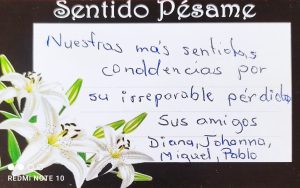 Sentido Pésame
Nuestras más sentidas
condolencias por
su irreparable pérdida
Sus amigos
Diana, Johanna,
Miguel, Pablo
REDMI NOTE 10